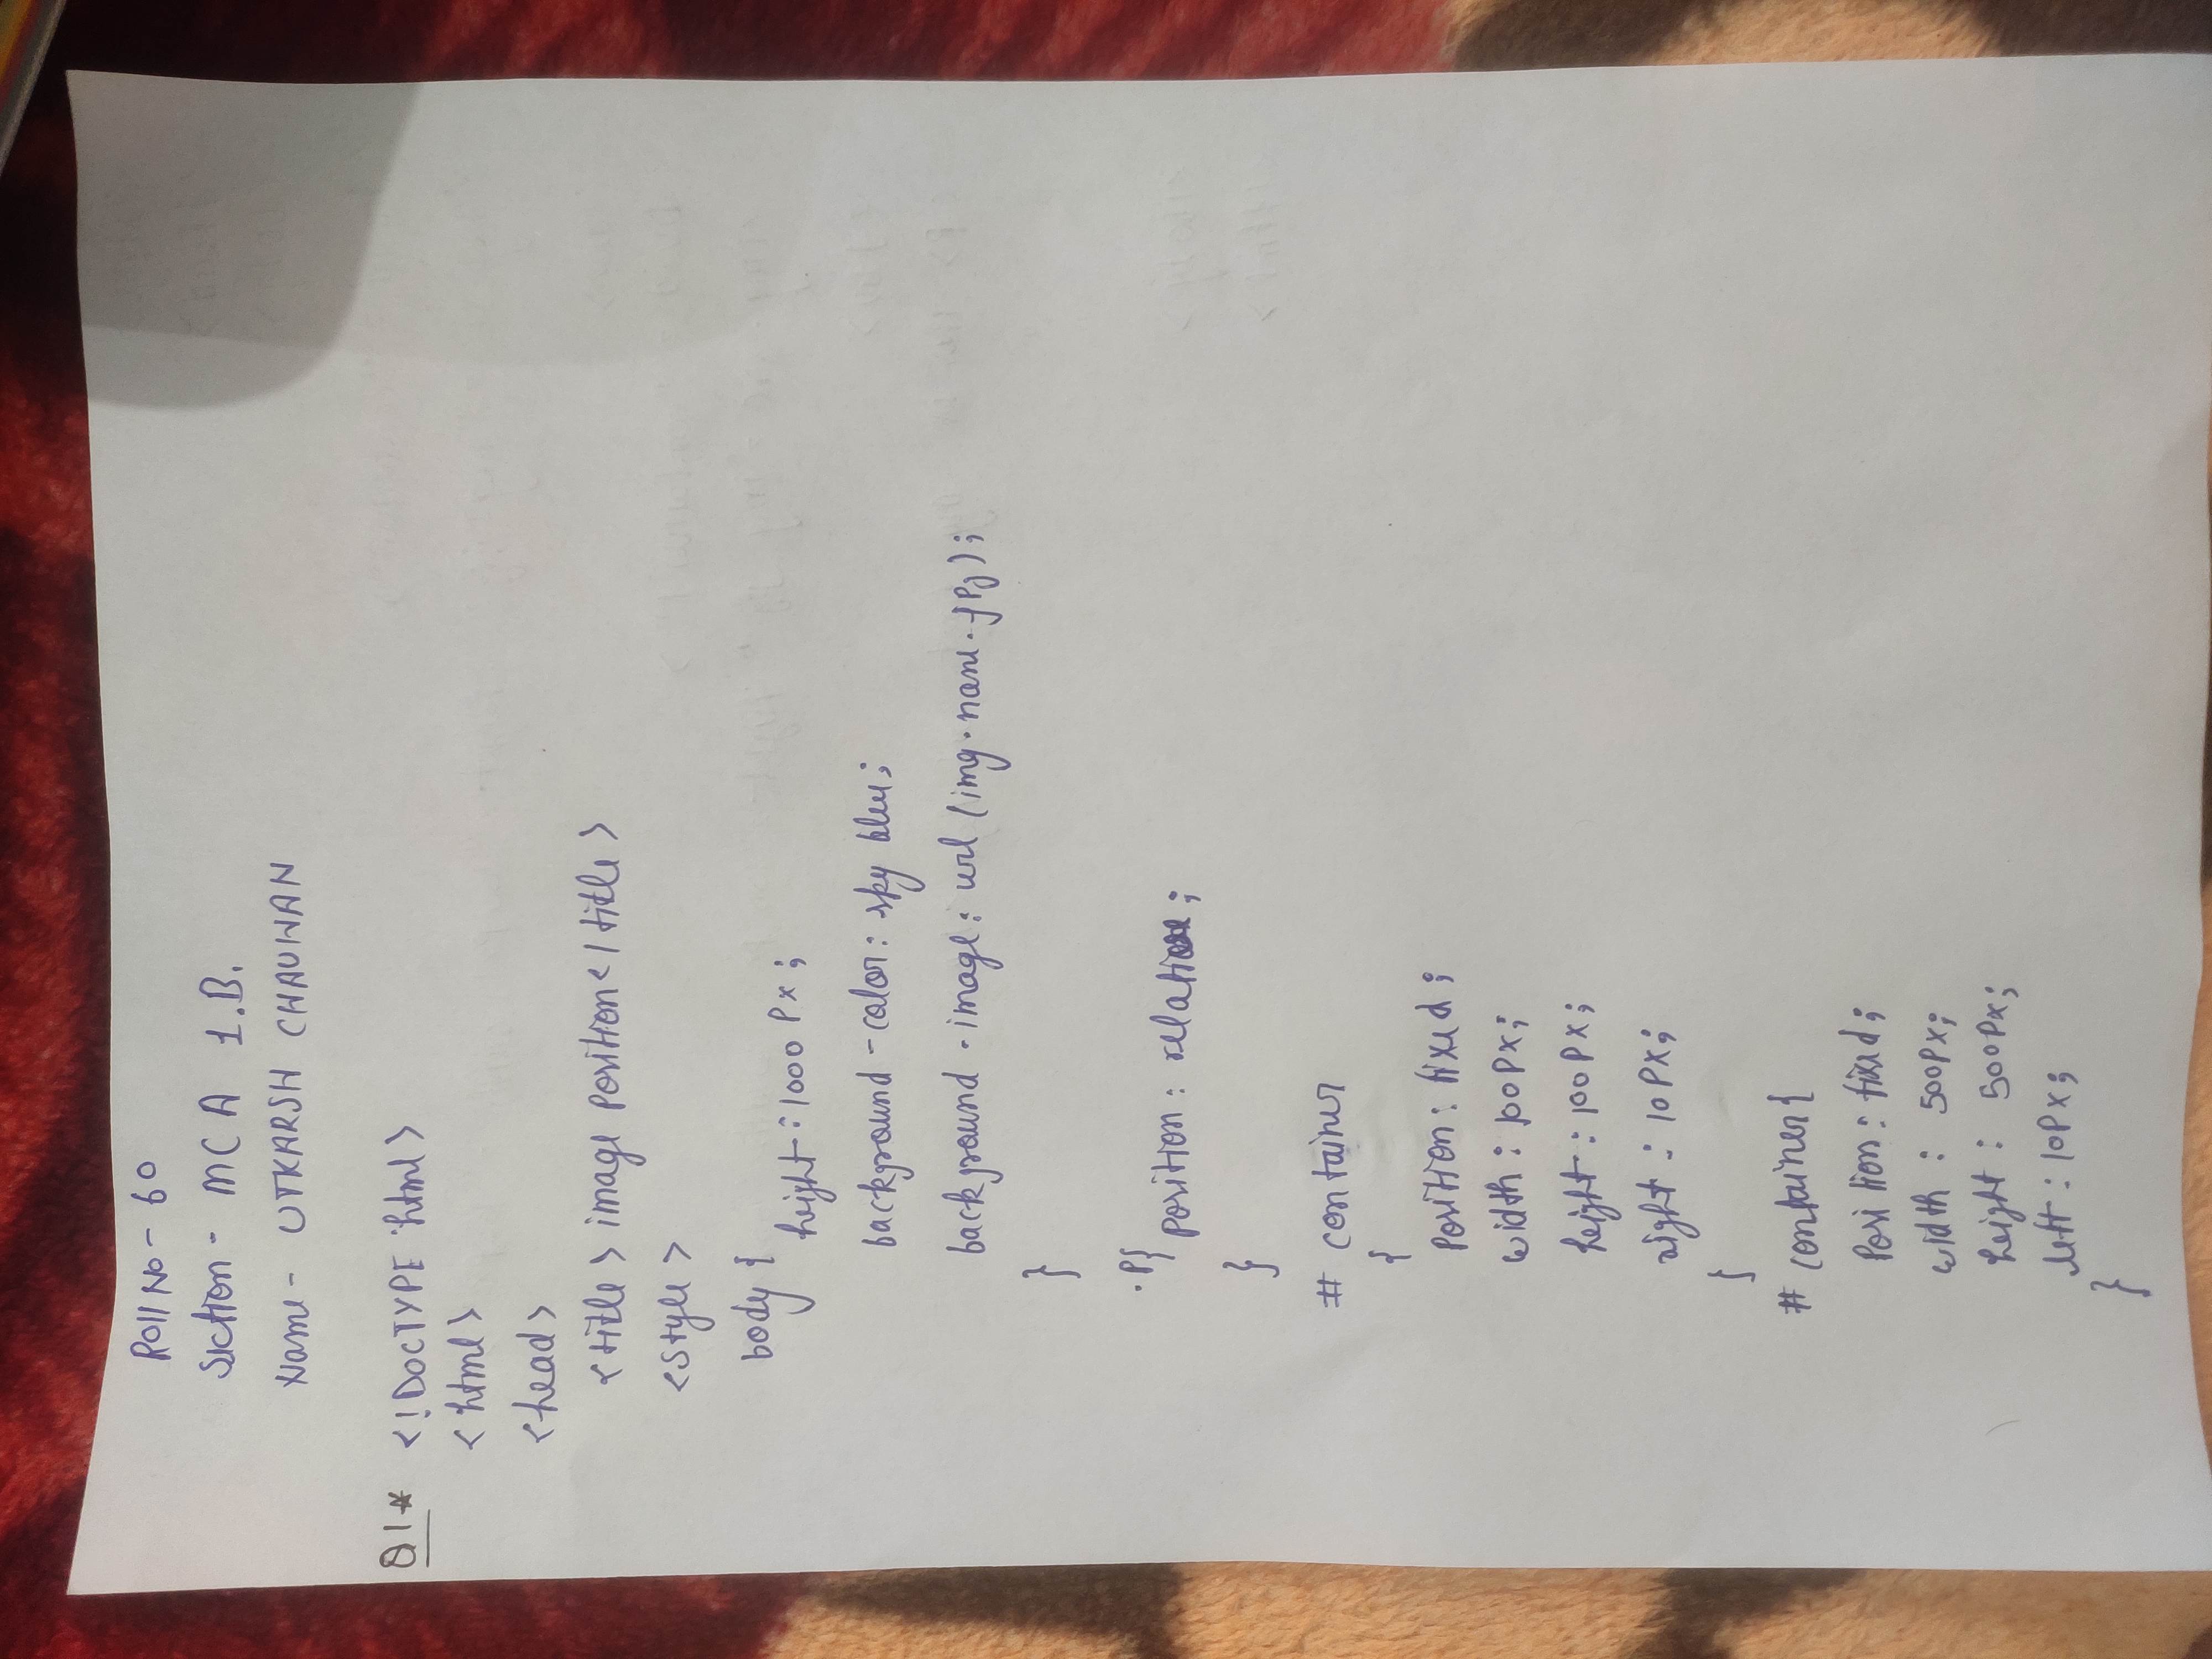 Roll No - 60
Section - MCA 1.B.
Name - UTKARSH CHAUHAN
Q1* <!DOCTYPE html>
<html>
<head>
<title> image position</title>
<style>
body {
height: 1000 Px;
background-color: sky blue;
background-image: url (img.name.jpg);
}
.P{
position: relative;
}
# container
{
Position: fixed;
width: 100Px;
height: 100Px;
right: 10Px;
}
# container{
Position: fixed;
width: 500Px;
height: 500Px;
left: 10Px;
}